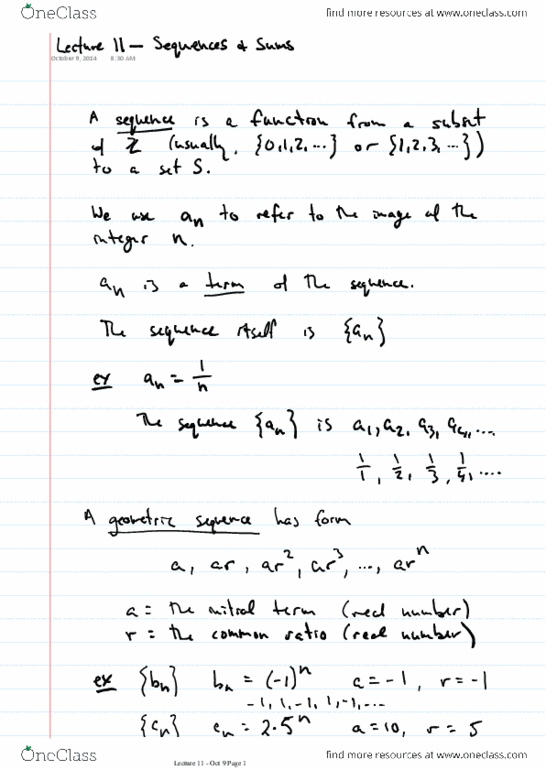 OneClass find more resources at www.oneclass.com
Lecture 11 — Sequences & Sums
October 9, 2014 8:30 AM
A sequence is a function from a subset
of Z (usually, {0,1,2,...} or {1,2,3,...})
to a set S.
We use aₙ to refer to the image of the
integer n.
aₙ is a term of the sequence.
The sequence itself is {aₙ}
ex aₙ = 1/n
The sequence {aₙ} is a₁, a₂, a₃, a₄, ...
1/1, 1/2, 1/3, 1/4, ....
A geometric sequence has form
a, ar, ar², ar³, ..., arⁿ
a = the initial term (real number)
r = the common ratio (real number)
ex {bₙ} bₙ = (-1)ⁿ a = -1, r = -1
-1, 1, -1, 1, -1, ...
{cₙ} cₙ = 2·5ⁿ a = 10, r = 5
Lecture 11 - Oct 9 Page 1
OneClass find more resources at www.oneclass.com